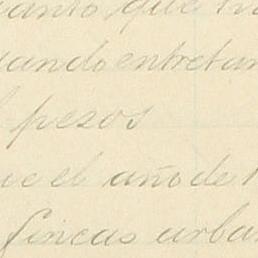 uanto que h
uando entretan
l pesos
ue el año de 1
fincas urban